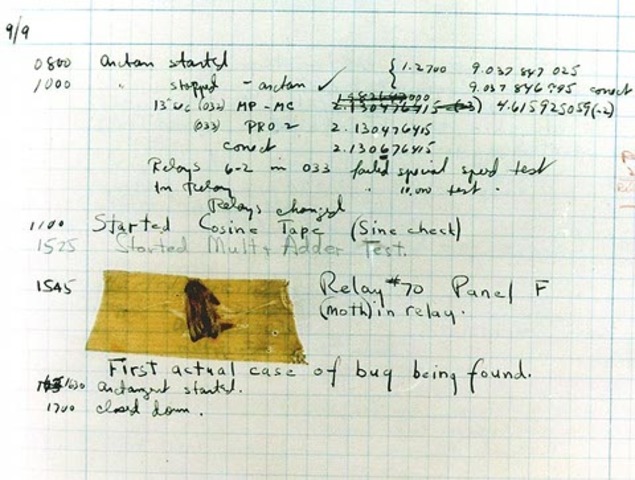 9/9
0800 Arctan started { 1.2700 9.037 847 025
1000 " stopped - arctan ✓ 9.037 846 995 correct
13"uc (032) MP-MC 2.130476415 (-3) 4.615925059(-2)
(033) PRO 2 2.130476415
correct 2.130676415
Relays 6-2 in 033 failed special speed test
In Relay " 10,000 test .
Relays changed
1100 Started Cosine Tape (Sine check)
1525 Started Mult + Adder Test.
1545 Relay #70 Panel F
(moth) in relay.
First actual case of bug being found.
1630 Arctangent started.
1700 closed down.